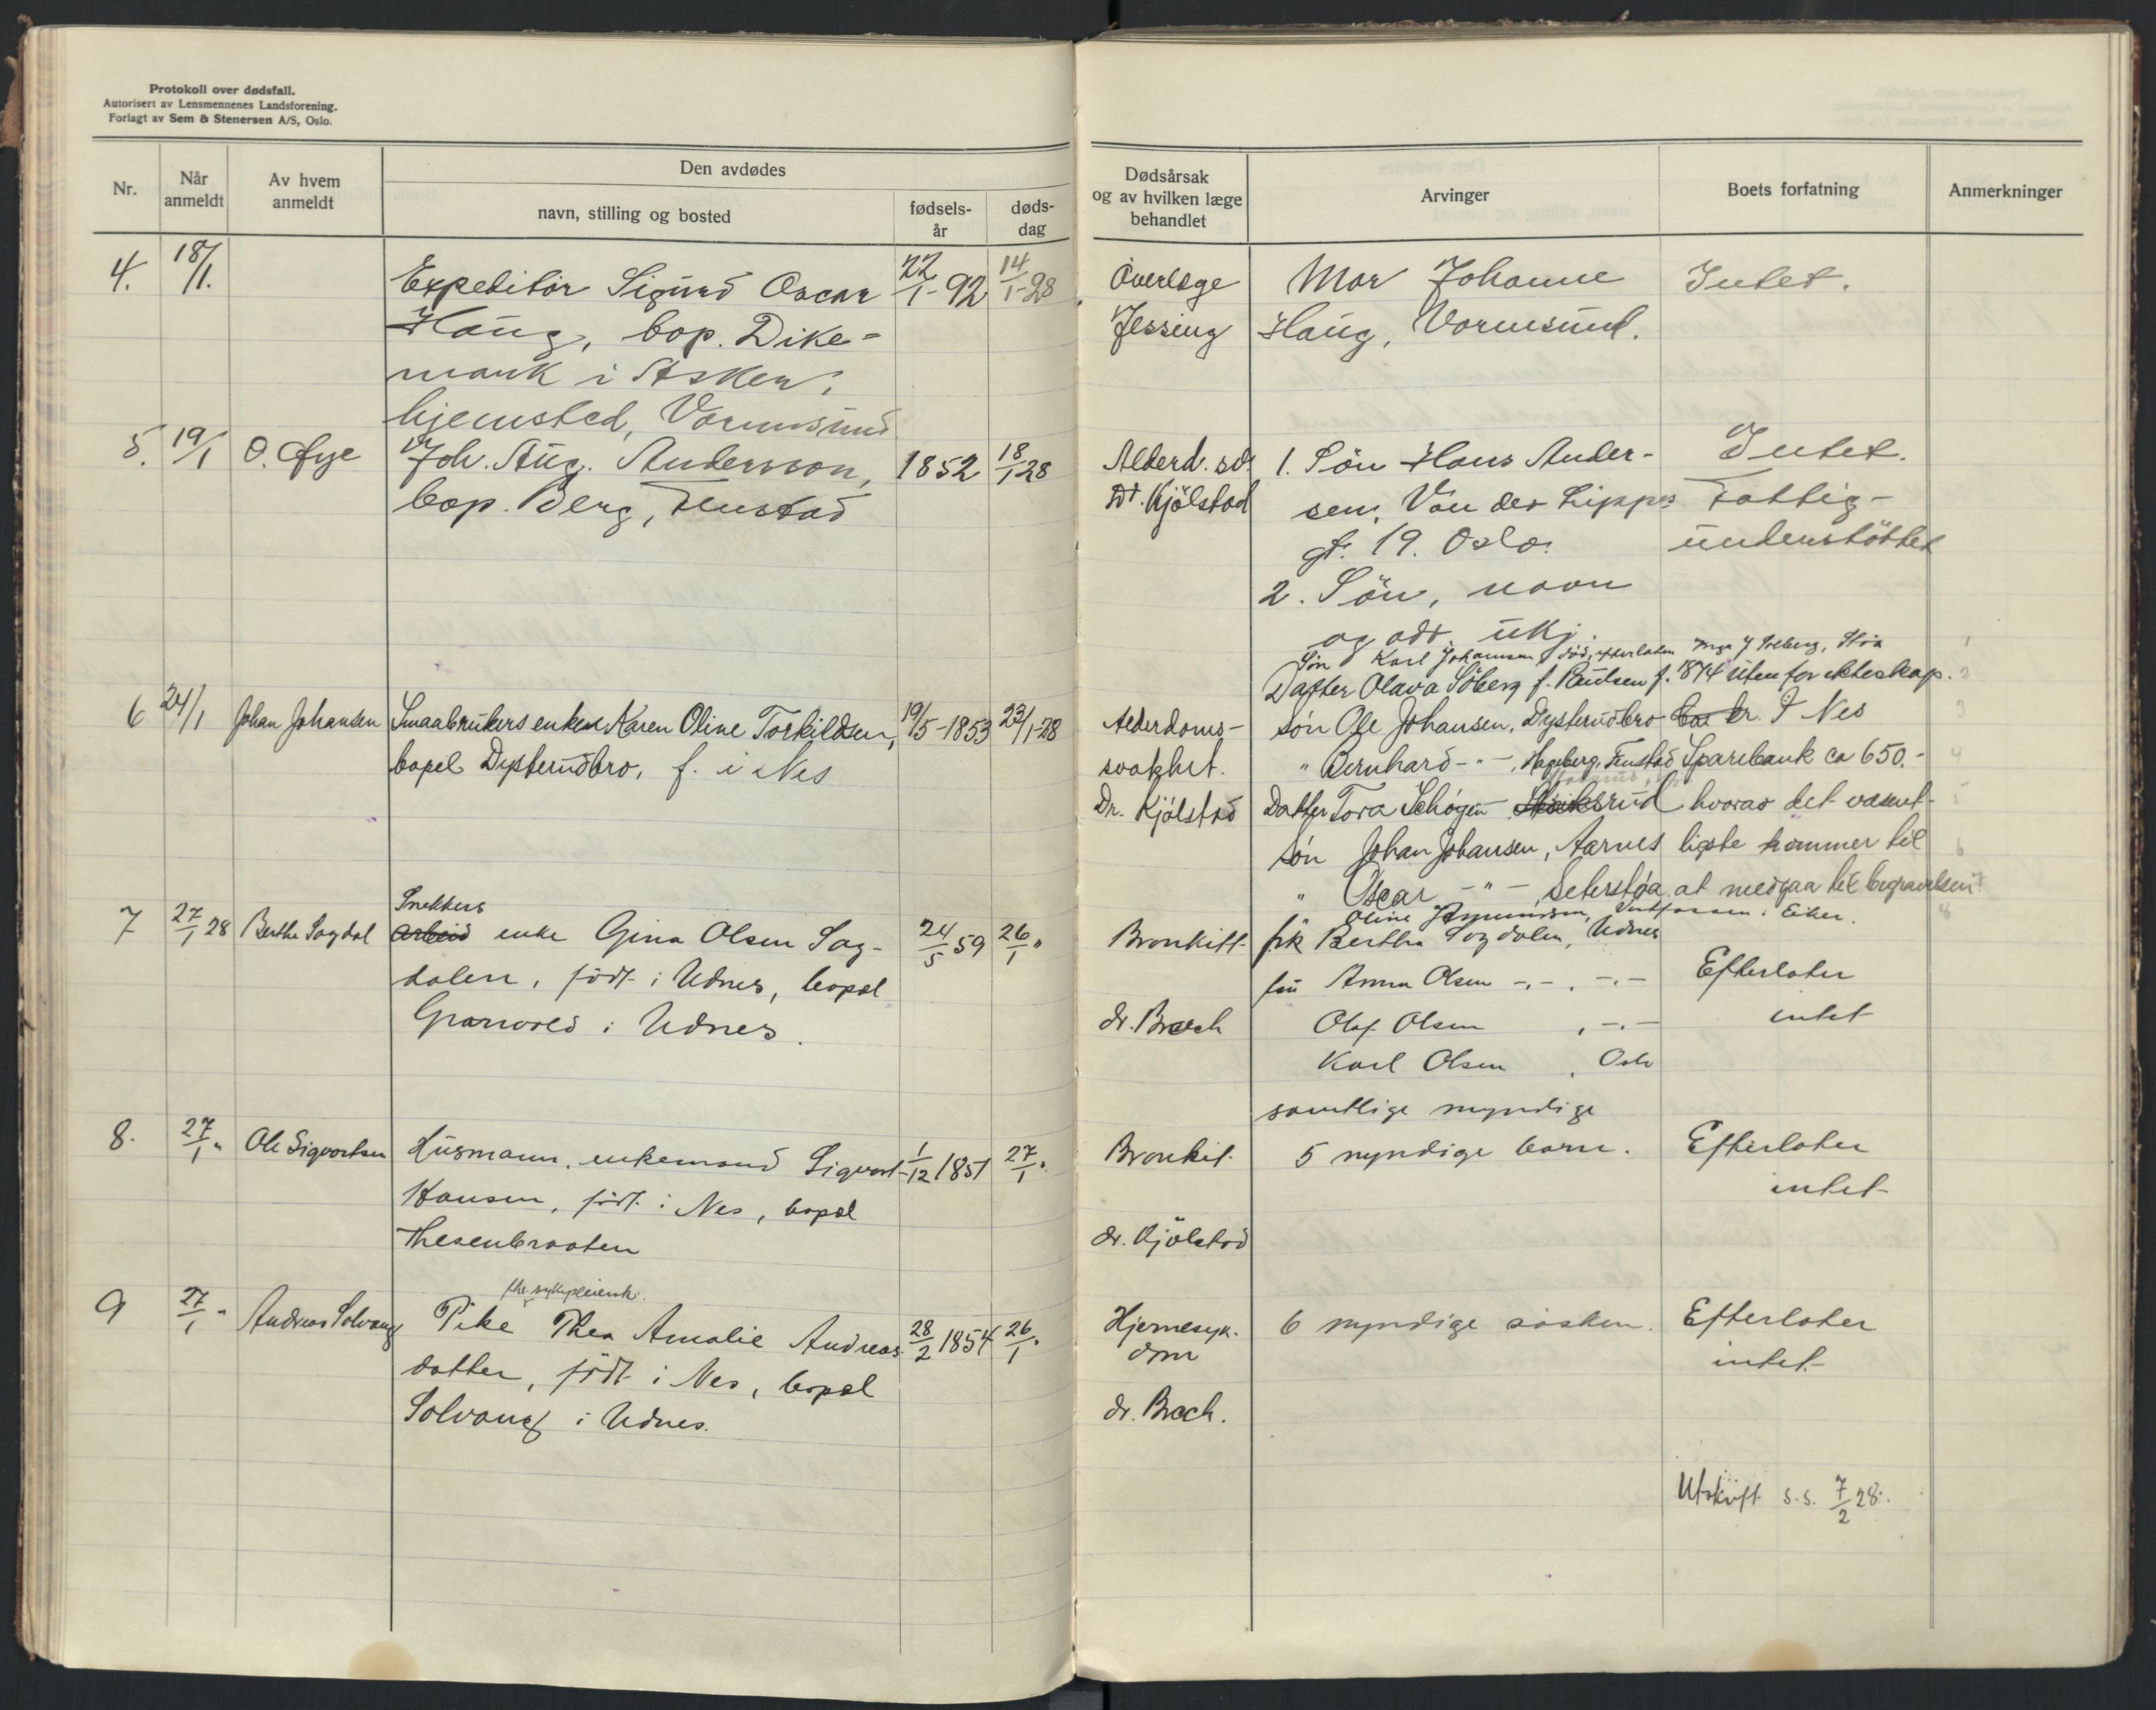 Protokoll over dødsfall.
Autorisert av Lensmennenes Landsforening.
Forlagt av Sem & Stenersen A/S, Oslo.
Nr.
Når anmeldt
Av hvem anmeldt
Den avdødes
navn, stilling og bosted
fødsels-år
døds-dag
Dødsårsak
og av hvilken læge
behandlet
Arvinger
Boets forfatning
Anmerkninger
4. 18/1. Expeditör Sigurd Oscar 22/1-92 14/1-28
Haug, bop. Dike-
mark i Asker,
hjemsted, Vormsund
Överlæge
Jessing
Mor Johanne
Haug, Vormsund.
Intet.
5. 19/1 O. Øye Joh. Aug. Andersson, 1852 18/1 28
bop. Berg, Fenstad
Alderd. sv.
Dr. Kjölstad
1. Sön Hans Ander-
sen, Van der Lippes
gt. 19. Oslo.
2. Sön, navn
og adr. ukj.
Intet.
Fattig-
understöttet
6 24/1 Johan Johansen Smaabrukers enken Karen Oline Torkildsen, 19/5-1853 23/1-28
bopel Dysterudbro, f. i Nes
Alderdoms-
svakhet.
Dr. Kjölstad
Sön Karl Johansen död, efterlaten Solberg, Stöa 1
Datter Olava Söberg f. Paulsen f. 1874 uten for ekteskap. 2
sön Ole Johansen, Dysterudbro kr. I Nes 3
" Bernhard -"-, Hageberg, Fenstad Sparebank ca 650.- 4
Datter Tora Schøgen hvorav det vesent- 5
Sön Johan Johansen, Aarnes ligste kommer til 6
" Oscar -"- Seterstøa at medgaa til begravelsen
" Oline Amundsen, Vestfossen i Eiker. 8
7 27/1 28 Berthe Sagdal Snekkers
arbeid enke Gina Olsen Sag- 24/5 59 26/1 "
dalen, födt i Udnes, bopel
Granvold i Udnes.
Bronkitt
dr. Broch
frk Bertha Sagdalen, Udnes
fru Anna Olsen -,- . -.-
Olaf Olsen , -.-
Karl Olsen , Oslo
samtlige myndige
Efterlater
intet
8. 27/1 " Ole Sigvartsen Husmann, enkemand Sigvart 1/12 1851 27/1 "
Hansen, födt i Nes, bopel
Thesenbraaten
Bronkit.
dr. Kjölstad
5 myndige barn.
Efterlater
intet
9 27/1 " Andreas Solvang Pike Thea Amalie Andreas- 28/2 1854 26/1 "
datter, födt i Nes, bopel
Solvang i Udnes.
Hjernesyk-
dom
dr. Broch.
6 myndige sösken.
Efterlater
intet
Utskrift s.s. 7/2 28.